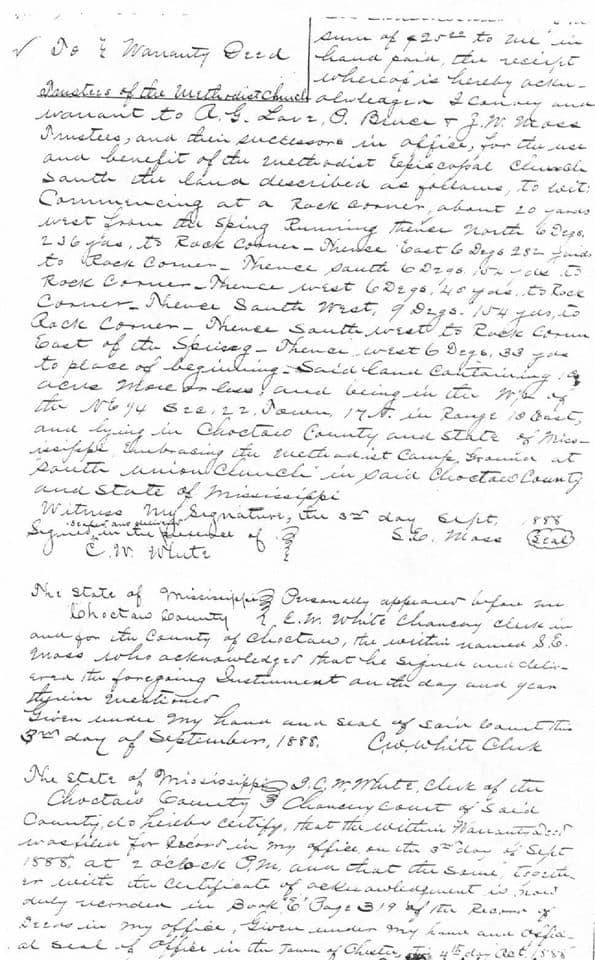 sum of $25.00 to me in
To } Warranty Deed
hand paid, the receipt
whereof is hereby ackn-
Trustees of the Methodist Church
owledged I convey and
warrant to A. G. Love, O. Bruce & J. W. Moss
Trustees, and their successors in office, for the use
and benefit of the Methodist Episcopal Church
South the land described as follows, to wit:
Commencing at a Rock corner, about 20 yards
west from the Spring Running thence North 6 Degs.
236 yds, to Rock Corner - Thence East 6 Degs 282 yards
to Rock Corner - Thence South 6 Degs. 154 yds to
Rock Corner - Thence west 6 Degs, 40 yds, to Rock
Corner - Thence South West, 9 Degs. 154 yds, to
Rock Corner - Thence South west to Rock Corner
East of the Spring - Thence west 6 Degs, 33 yds
to place of beginning - Said land containing
acres more or less, and being in the W/2 of
the N.E 1/4 Sec. 22, Town, 17 N. in Range 10 East,
and lying in Choctaw County and State of Miss-
issippi. Embrasing the Methodist Camp, Ground at
"South Union Church" in said Choctaw County
and State of Mississippi
Witness My Signature, the 3rd day Sept, 1888
Sealed and delivered
Signed in the presence of } S. E. Moss (Seal)
C. W. White
The State of Mississippi } Personally appeared before me
Choctaw County } C. W. White Chancery clerk in
and for the County of Choctaw, the within named S. E.
Moss who acknowledged that he signed and deliv-
ered the foregoing Instrument on the day and year
therein mentioned
Given under my hand and seal of said Court this
3rd day of September, 1888. C. W. White Clerk
The State of Mississippi } I, C. W. White, Clerk of the
Choctaw County } Chancery Court of Said
County, do hereby certify, that the within Warranty Deed
was filed for Record in my office, on the 3rd day of Sept
1888, at 2 oclock P.M, and that the same, togeth-
er with the certificate of acknowledgement is now
duly recorded in Book "E" Page 319 of the Record of
Deeds in my office, Given under my hand and offici-
al seal of office in the Town of Chester, this 4th day Oct. 1888